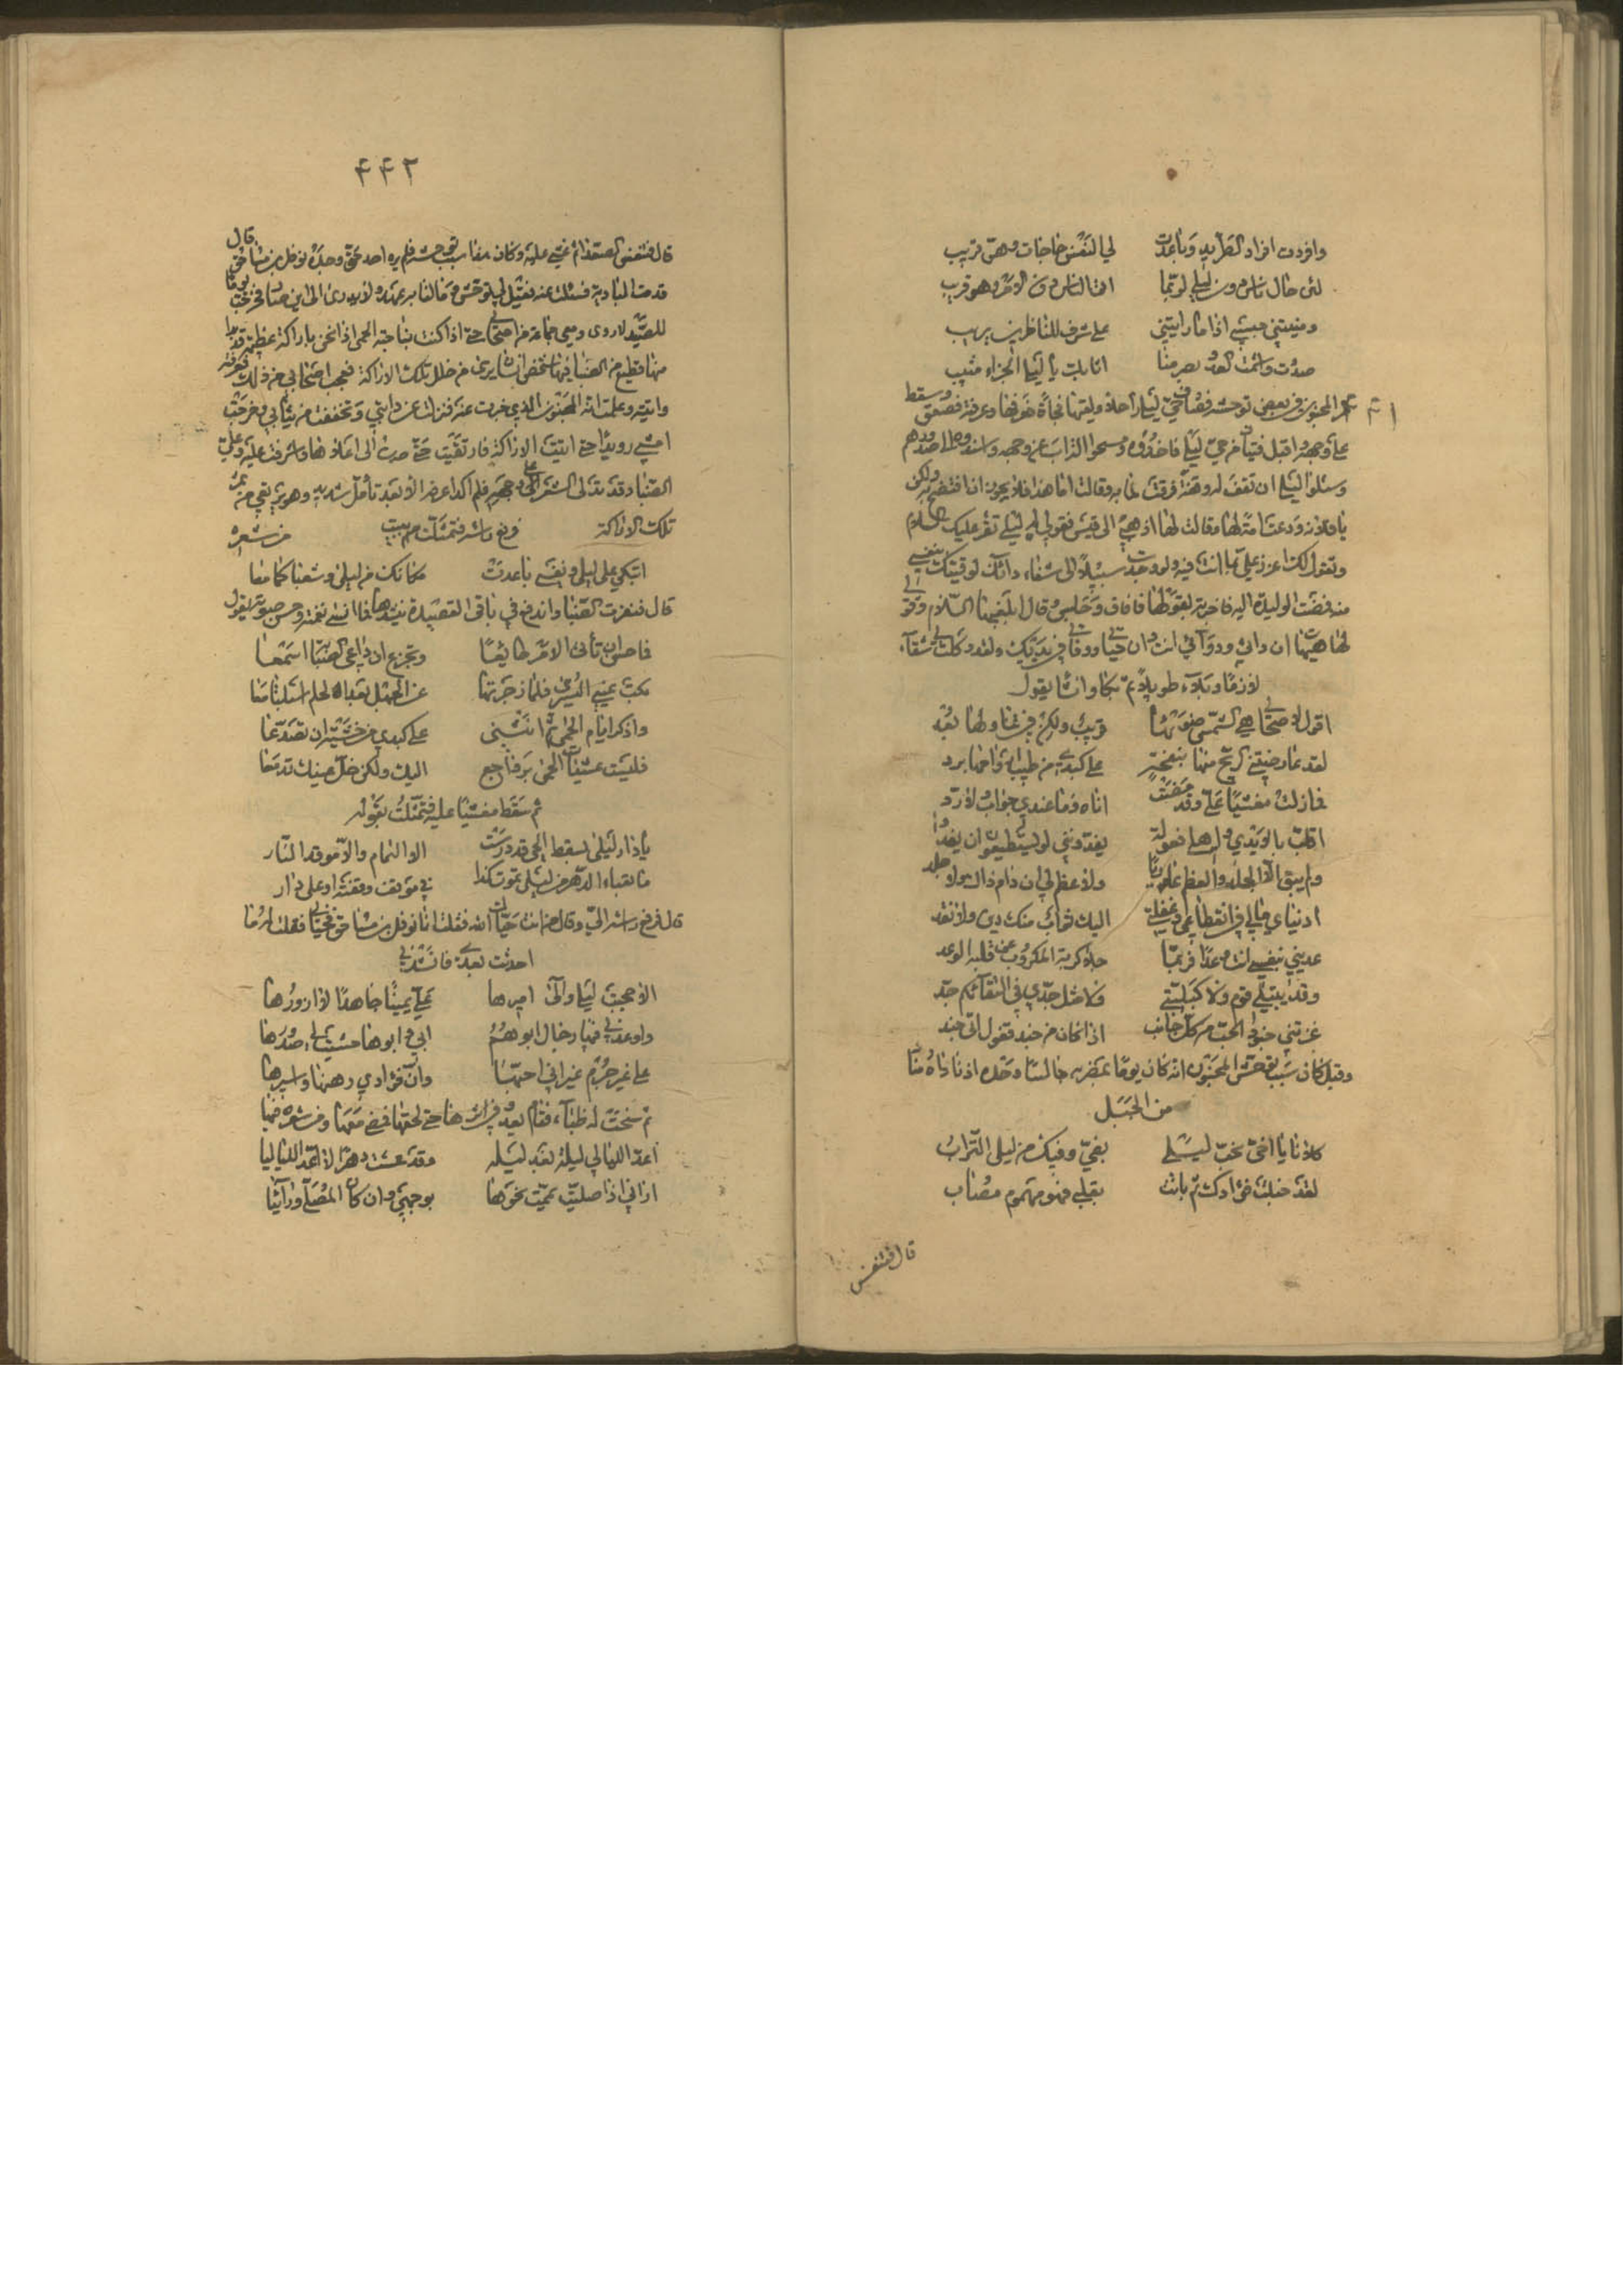 وافردت افراد الطريد وباعدت لي النفس حاجات وهن قريب
لئن حال ناس دون ليلى لربما اتى الناس دون الامر وهو قريب
ومنيتني حتى اذا ما رايتني على شرف للناظرين يريب
صددت واشمت العدو بصرمنا اثابك يا ليلى الجزاء مثيب
مر المجنون في بعض توحشه فصادف حي ليلى راحلا ولقيها فجاة فعرفها وعرفته فصعق وسقط
على وجهه واقبل فتيان من حي ليلى فاخذوه ومسحوا التراب عن وجهه واسندوه الى صدورهم
وسئلوا ليلى ان تقف له وقفة فرقت لما به وقالت اما هذا فلا يجوز ان افتضح به ولكن
يا فلانة ودعت امة لها وقالت لها اذهبي الى قيس فقولي له ليلى تقرء عليك السلام
وتقول لك اعزز علي بما انت فيه ولو وجدت سبيلا الى شفاء دائك لوقيتك بنفسي
منه فمضت الوليدة اليه فاخبرته بقولها فافاق وجلس وقال ابلغيها السلام وقولي
لها هيهات ان دائي ودوائي انت وان حياتي ووفاتي في يديك ولقد وكلت بي شقاء
لازما وبلاء طويلا ثم بكا وانشا يقول
اقول لاصحابي هي الشمس ضوئها قريب ولكن في تناولها بعد
لقد عارضتني الريح منها بنفحة على كبدي من طيب ارواحها برد
فما زلت مغشيا علي وقد مضت اناة وما عندي جواب ولا رد
اقلب بالايدي واهلي بعولة يفدونني لو يستطيعون ان يفدوا
ولم يبق الا الجلد والعظم عاريا ولا عظم لي ان دام ذاك ولا جلد
ادنياي مالي في انقطاعي وغفلتي اليك ثواب منك دين ولا نقد
عديني بنفسي انت وعدا فربما جلا كربة المكروب عن قلبه الوعد
وقد يبتلى قوم ولا كبليتي ولا مثل جدي في الشقاء بكم جد
غزتني جنود الحب من كل جانب اذا حان من جند قفول اتى جند
وقيل كان سبب توحش المجنون انه كان يوما بضريه جالسا وحده اذ ناداه مناد
من الجبل
كلانا يا اخي يحب ليلى بفي وفيك من ليلى التراب
لقد خبلت فؤادك ثم باتت بقلبي فهو مهموم مصاب
قال فتنفس
٤٤٢
قال فتنفس الصعدا ثم غشي عليه وكان هذا سبب توحشه فلم ير له احد حتى وجده نوفل بن مساحق قال
قدمت البادية فسئلت عنه فقيل لي توحش وما لنا به عهد ولا يدرى الى اين صار فخرجت يوما
للصيد لاروى ومعي جماعة من اصحابي حتى اذا كنت بناحية الحمى اذا نحن باراكة عظيمة قد بدا
منها قطيع من الظبا فيها شخص انسان يرى من خلل تلك الاراكة فعجب اصحابي من ذلك فعرفته
واتيته وعلمت انه المجنون الذي خبرت عنه فنزلت عن دابتي وتخففت من ثيابي وخرجت
امشي رويدا حتى اتيت الاراكة فارتقيت حتى صرت الى اعلاها واشرفت عليه وعلى
الظبا وقد تدلى الشعر على وجهه فلم اكد اعرفه الا بعد تأمل شديد وهو يرتعي من ثمر
تلك الاراكة فرفع راسه فتمثلت ببيت من شعره
اتبكي على ليلى ونفسك باعدت مكانك من ليلى وشعباكما معا
قال فنفرت الظبا واندفع في باقي القصيدة ينشدها فما انسى نغمته وحسن صوته يقول
فما حسن ان تأتي الامر طايعا وتجزع ان داعي الصبا اسمعا
بكت عيني اليسرى فلما زجرتها عن الجهل بعد الحلم اسبلتا معا
واذكر ايام الحمى ثم انثني على كبدي من خشية ان تصدعا
فليست عشيات الحمى برواجع اليك ولكن خل عينيك تدمعا
ثم سقط مغشيا عليه فتمثلت بقوله
يا دار ليلى بسقط الحي قد درست الا الثمام والا موقد النار
ما تفتاء الدهر من ليلى تموت كذا في موقف وقفته او على دار
قال فرفع راسه الي وقال من انت حياك الله فقلت انا نوفل بن مساحق فحياني فقلت له ما
احدثت بعدي فانشدني
الا حجبت ليلى والى اميرها علي يمينا جاهدا لا ازورها
واوعدني فيها رجال ابوهم ابي وابوها خشنت لي صدورها
على غير جرم غير اني احبها وان فؤادي رهنها واسيرها
ثم سنحت له ظباء فقام يعدو في اثرها حتى لحقها فمضى معها ومن شعره فيها
اعد الليالي ليلة بعد ليله وقد عشت دهرا لا اعد اللياليا
اراني اذا صليت يممت نحوها بوجهي وان كان المصلى ورائيا